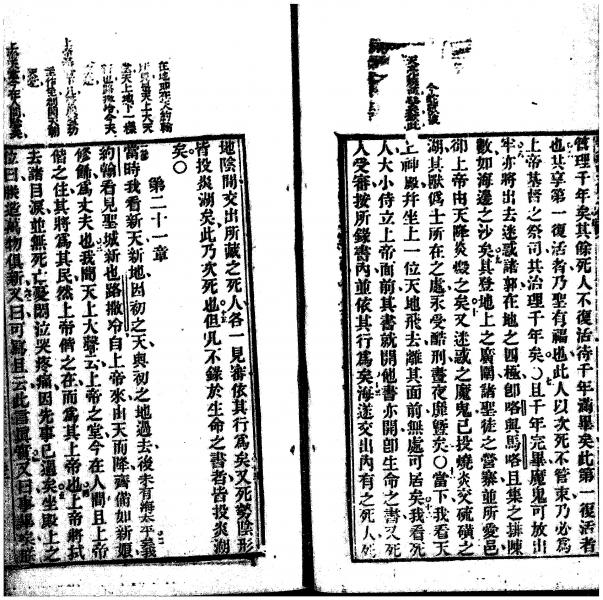 管理千年矣其餘死人不復活待千年滿畢矣此第一復活者
也其享第一復活者乃聖有福也此人以次死不管束乃必為
上帝基督之祭司其治理千年矣〇且千年完畢魔鬼可放出
牢亦將出去迷惑諸郭在地之四極卽咯與馬咯且集之排陳
數如海邊之沙矣其登地上之廣闊諸聖徒之營寨並所愛邑
卻上帝由天降炎燬之矣又迷惑之魔鬼已投燒炎交硫磺之
湖其獸偽士所在之處永受酷刑晝夜靡曁矣〇當下我看天
上神殿并坐上一位天地飛去離其面前無處可居矣我看死
人大小侍立上帝面前其書就開他書亦開卽生命之書又死
人受審按所錄書內並依其行為矣海遂交出內有之死人死
地陰間交出所藏之死人各一見審依其行為矣又死勢陰形
皆投炎湖矣此乃次死也但凡不錄於生命之書者皆投炎湖
矣〇
第二十一章
當時我看新天新地因初之天與初之地過去後未有海太平義
約翰看見聖城新也路撒冷自上帝來出天而降齊備如新娘
修飾為丈夫也我聞天上大聲云上帝之堂今在人間且上帝
偕之住其將為其民然上帝偕之在而為其上帝也上帝將拭
去諸目淚並無死亡憂悶泣哭疼痛因先事已過矣坐殿上之
位曰朕造萬物俱新又曰可寫且云此言眞實又曰事畢矣朕